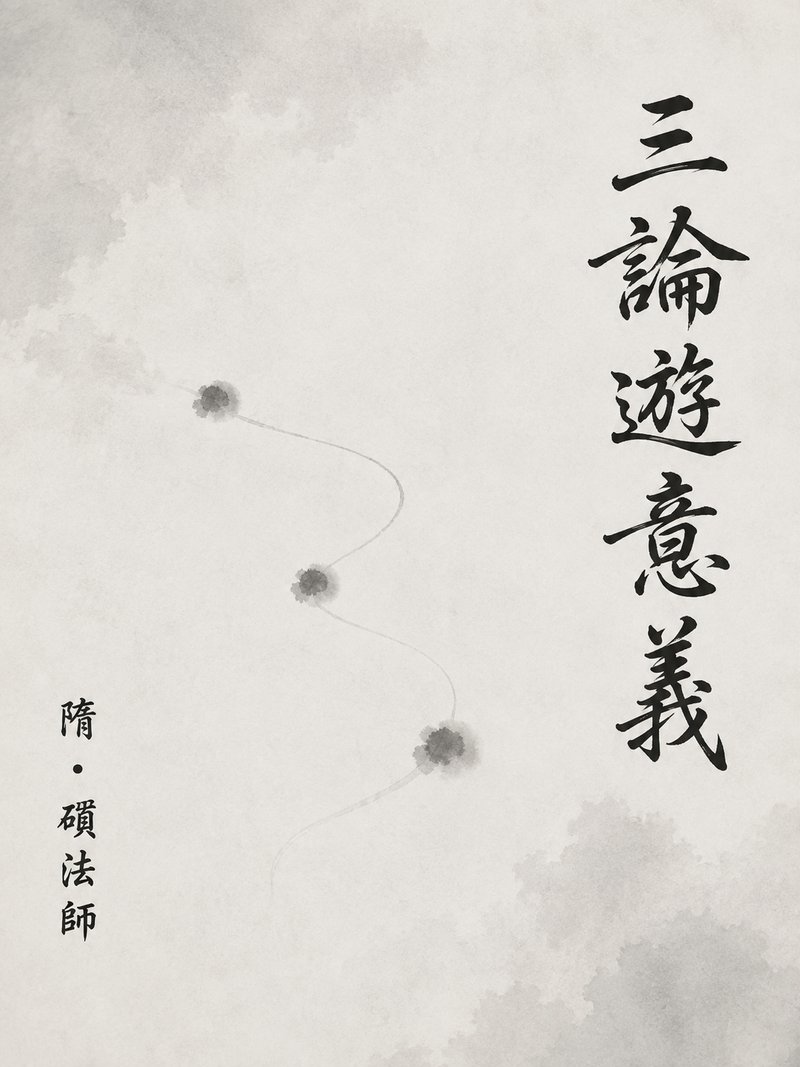 三論遊意義
隋・碩法師